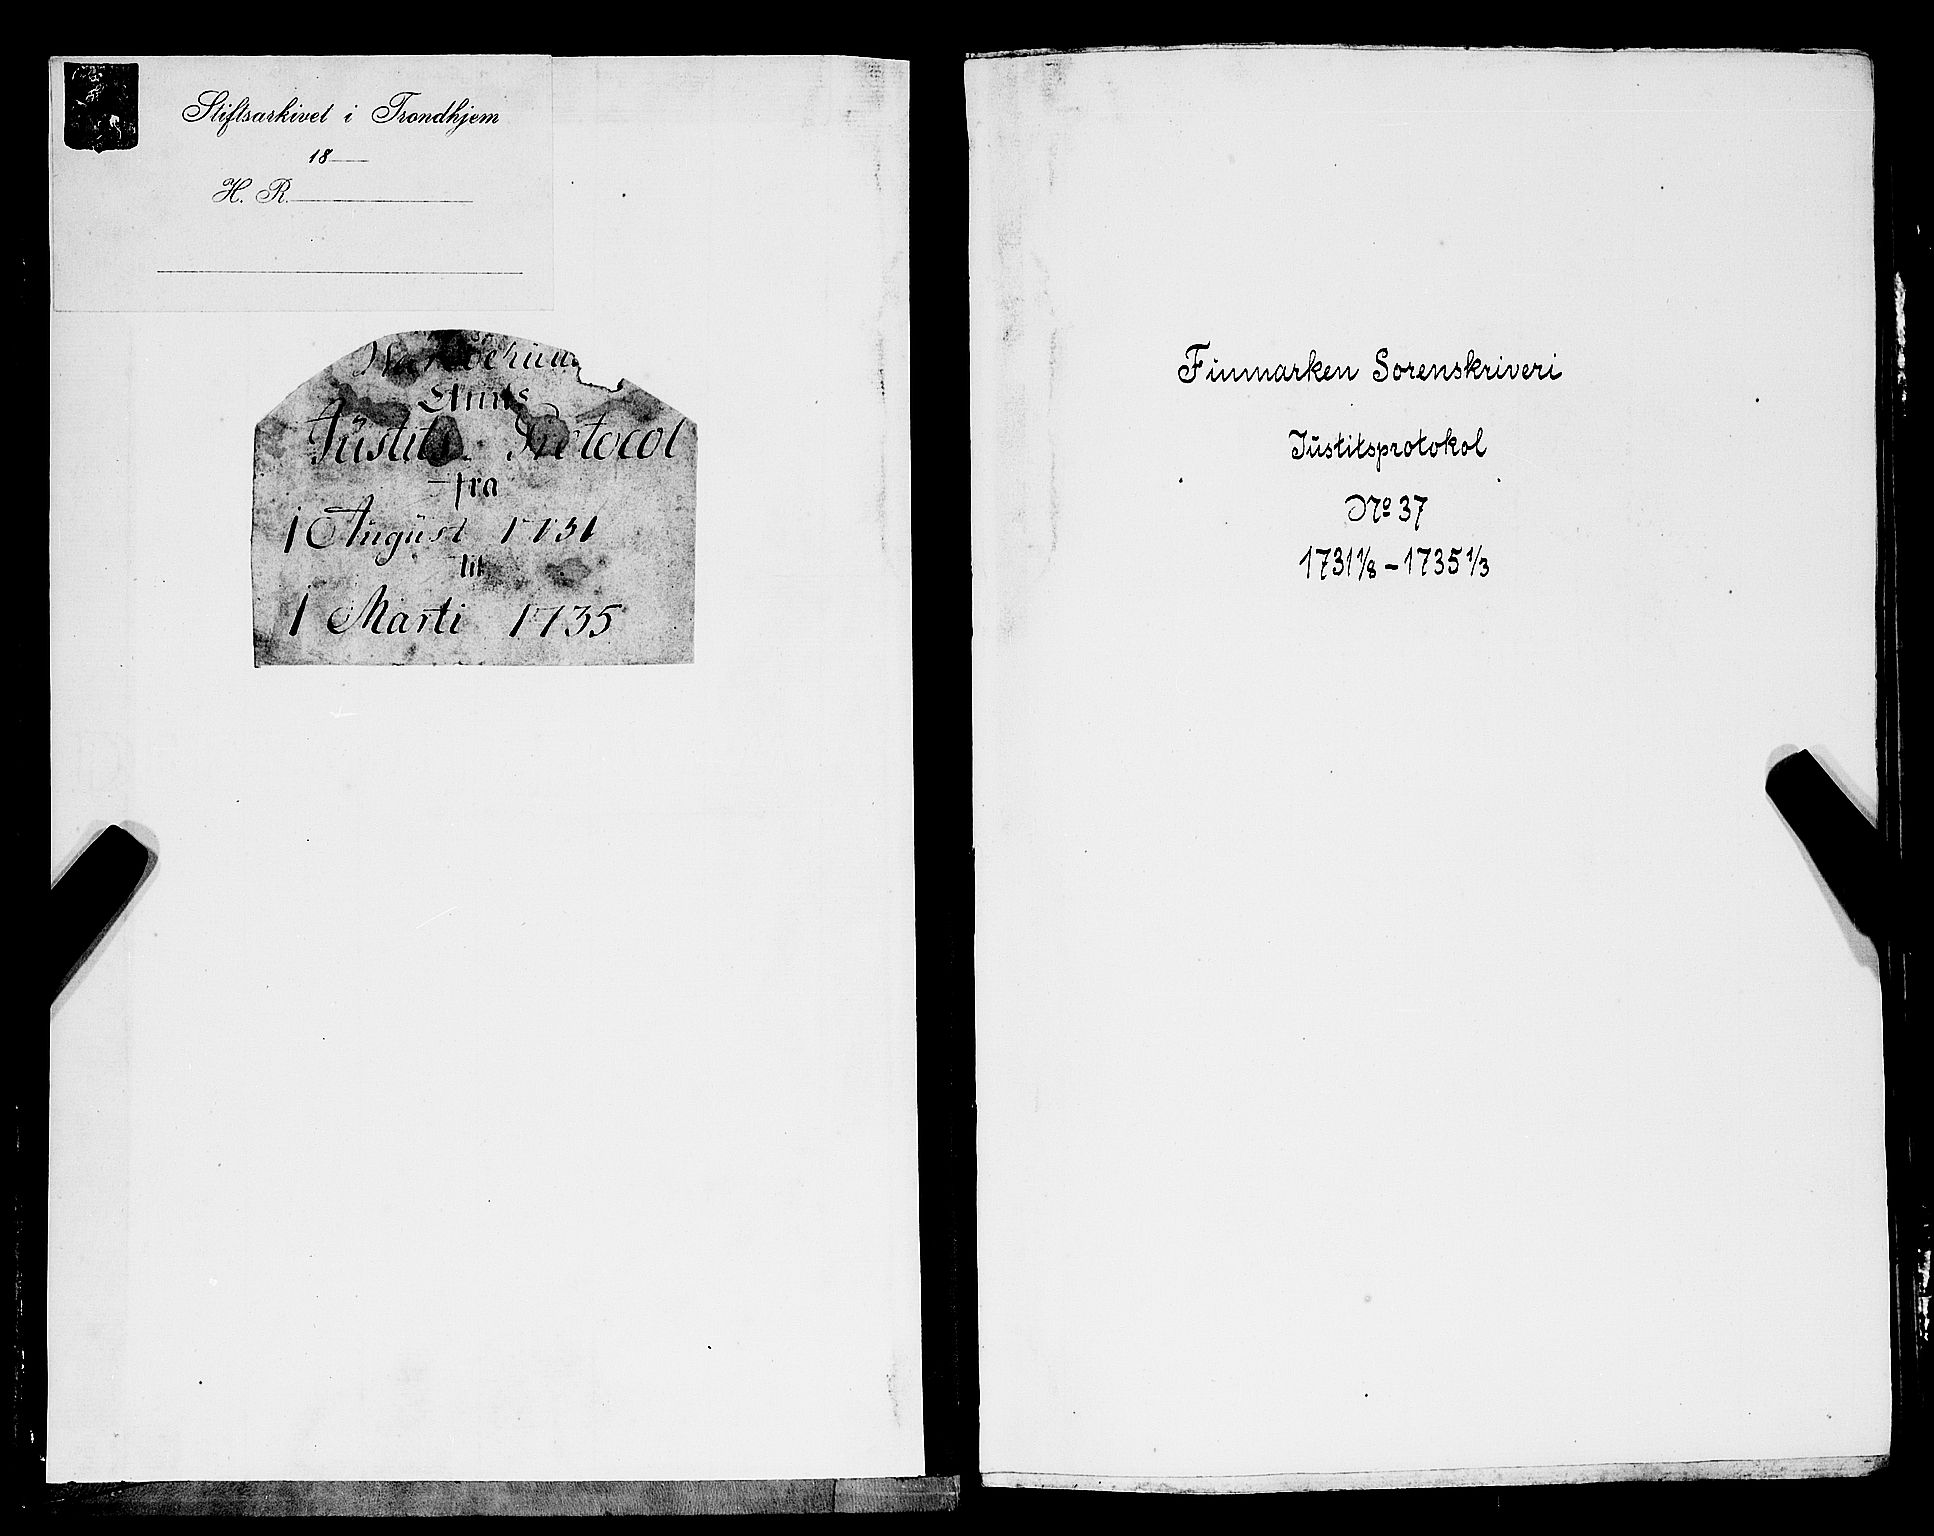 Stiftsarkivet i Trondhjem
18
H. R.
Amts
Justits Protocol
fra
1 August 1731
til
1 Marti 1735
Finmarken Sorenskriveri
Justitsprotokol
Nº 37
1731 1/8 - 1735 1/3